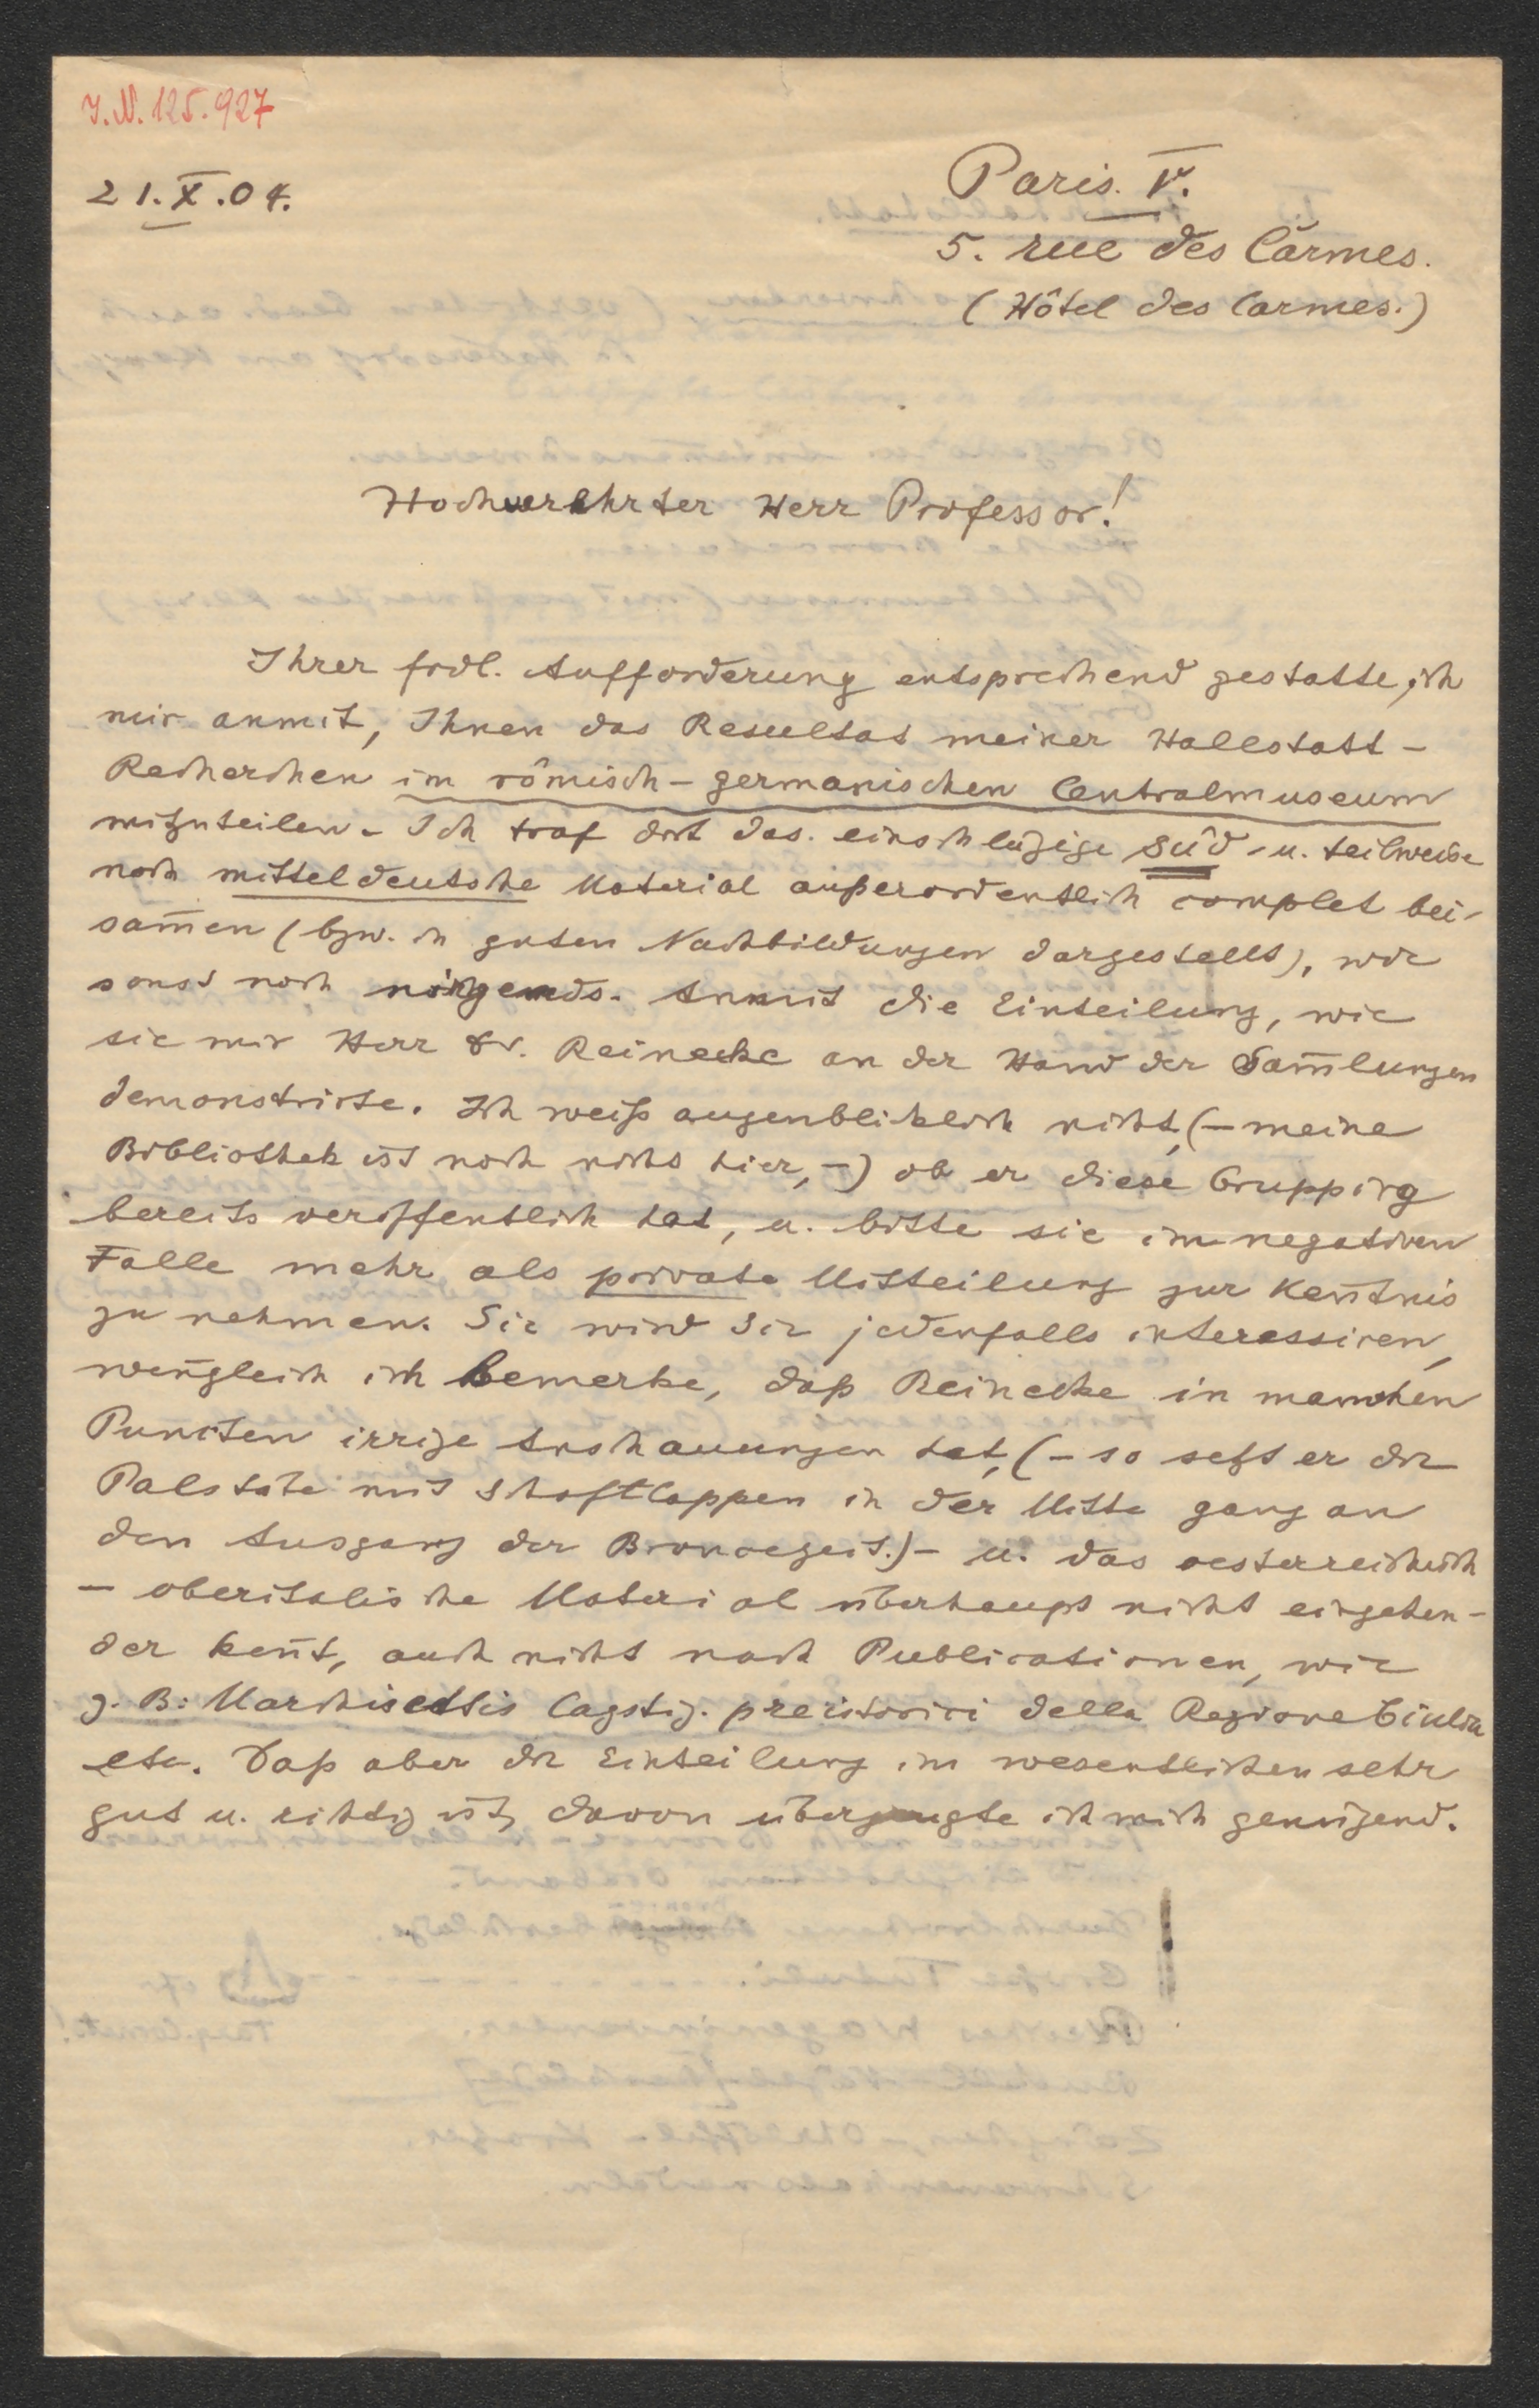 J.N. 125.927
21.X.04.
Paris. V.
5. rue des Carmes.
(Hôtel des Carmes.)
Hochverehrter Herr Professor!
Ihrer frdl. Aufforderung entsprechend gestatte ich
mir anmit, Ihnen das Resultat meiner Hallstatt-
Recherchen im römisch-germanischen Centralmuseum
mitzuteilen. Ich traf dort das einschlägige süd- u. teilweise
noch mitteldeutsche Material außerordentlich complet bei-
sam̄en (bzw. in guten Nachbildungen dargestellt), wie
sonst noch nirgends. Anmit die Einteilung, wie
sie mir Herr Dr. Reinecke an der Hand der Sam̄lungen
demonstrirte. Ich weiß augenblicklich nicht, (– meine
Bibliothek ist noch nicht hier, –) ob er diese Gruppirg
bereits veröffentlich hat, u. bitte sie im negativen
Falle mehr als private Mitteilung zur Ken̄tnis
zu nehmen. Sie wird Sie jedenfalls interessiren,
wen̄gleich ich bemerke, daß Reinecke in manchen
Puncten irrige Anschauungen hat, (– so setzt er die
Palstäbe mit Schaftlappen in der Mitte ganz an
den Ausgang der Broncezeit.) – u. das oesterreichisch
– oberitalische Material überhaupt nicht eingehen-
der ken̄t, auch nicht nach Publicationen, wie
z. B: Marchisettis Castig. preistorici della Regione Giulia
etc. Daß aber die Einteilung im wesentlichen sehr
gut u. richtig ist, davon überzeugte ich mich genügend.